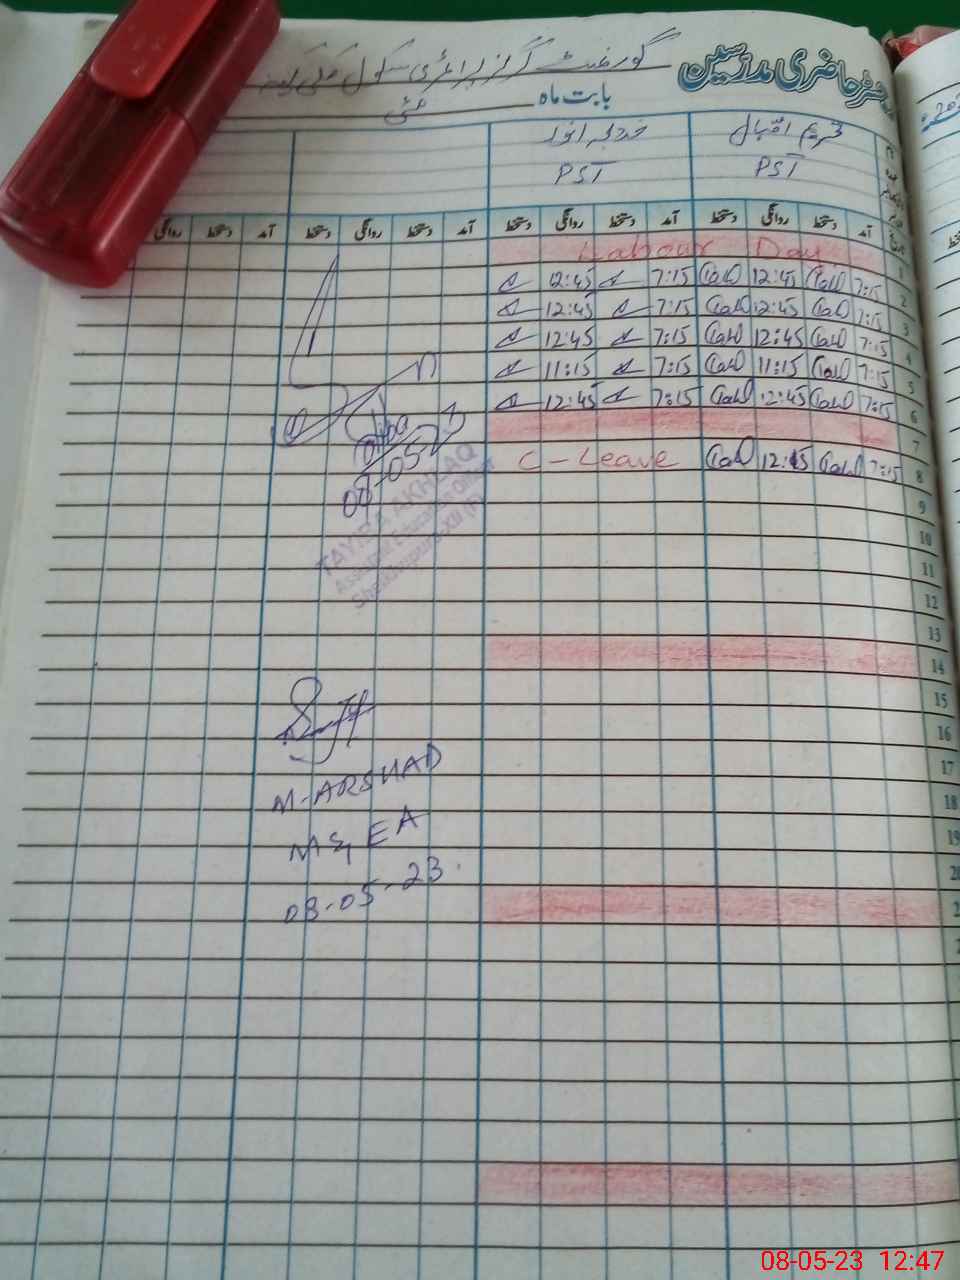 رجسٹر حاضری مدرسین گورنمنٹ گرلز پرائمری سکول
بابت ماہ مئی
تحریم اقبال خدیجہ انور
PST PST
آمد دستخط روانگی دستخط آمد دستخط روانگی دستخط آمد دستخط روانگی دستخط آمد دستخط روانگی
1 Labour Day
2 7:15 12:45 7:15 12:45
3 7:15 12:45 7:15 12:45
4 7:15 12:45 7:15 12:45
5 7:15 11:15 7:15 11:15
6 7:15 12:45 7:15 12:45
7
8 7:15 12:45 C-Leave
08-05-23
TAYIBA AKHLAQ
Assistant Education Officer
9
10
11
12
13
14
15
16
17
18
19
M-ARSHAD
MEA
08-05-23.
08-05-23 12:47